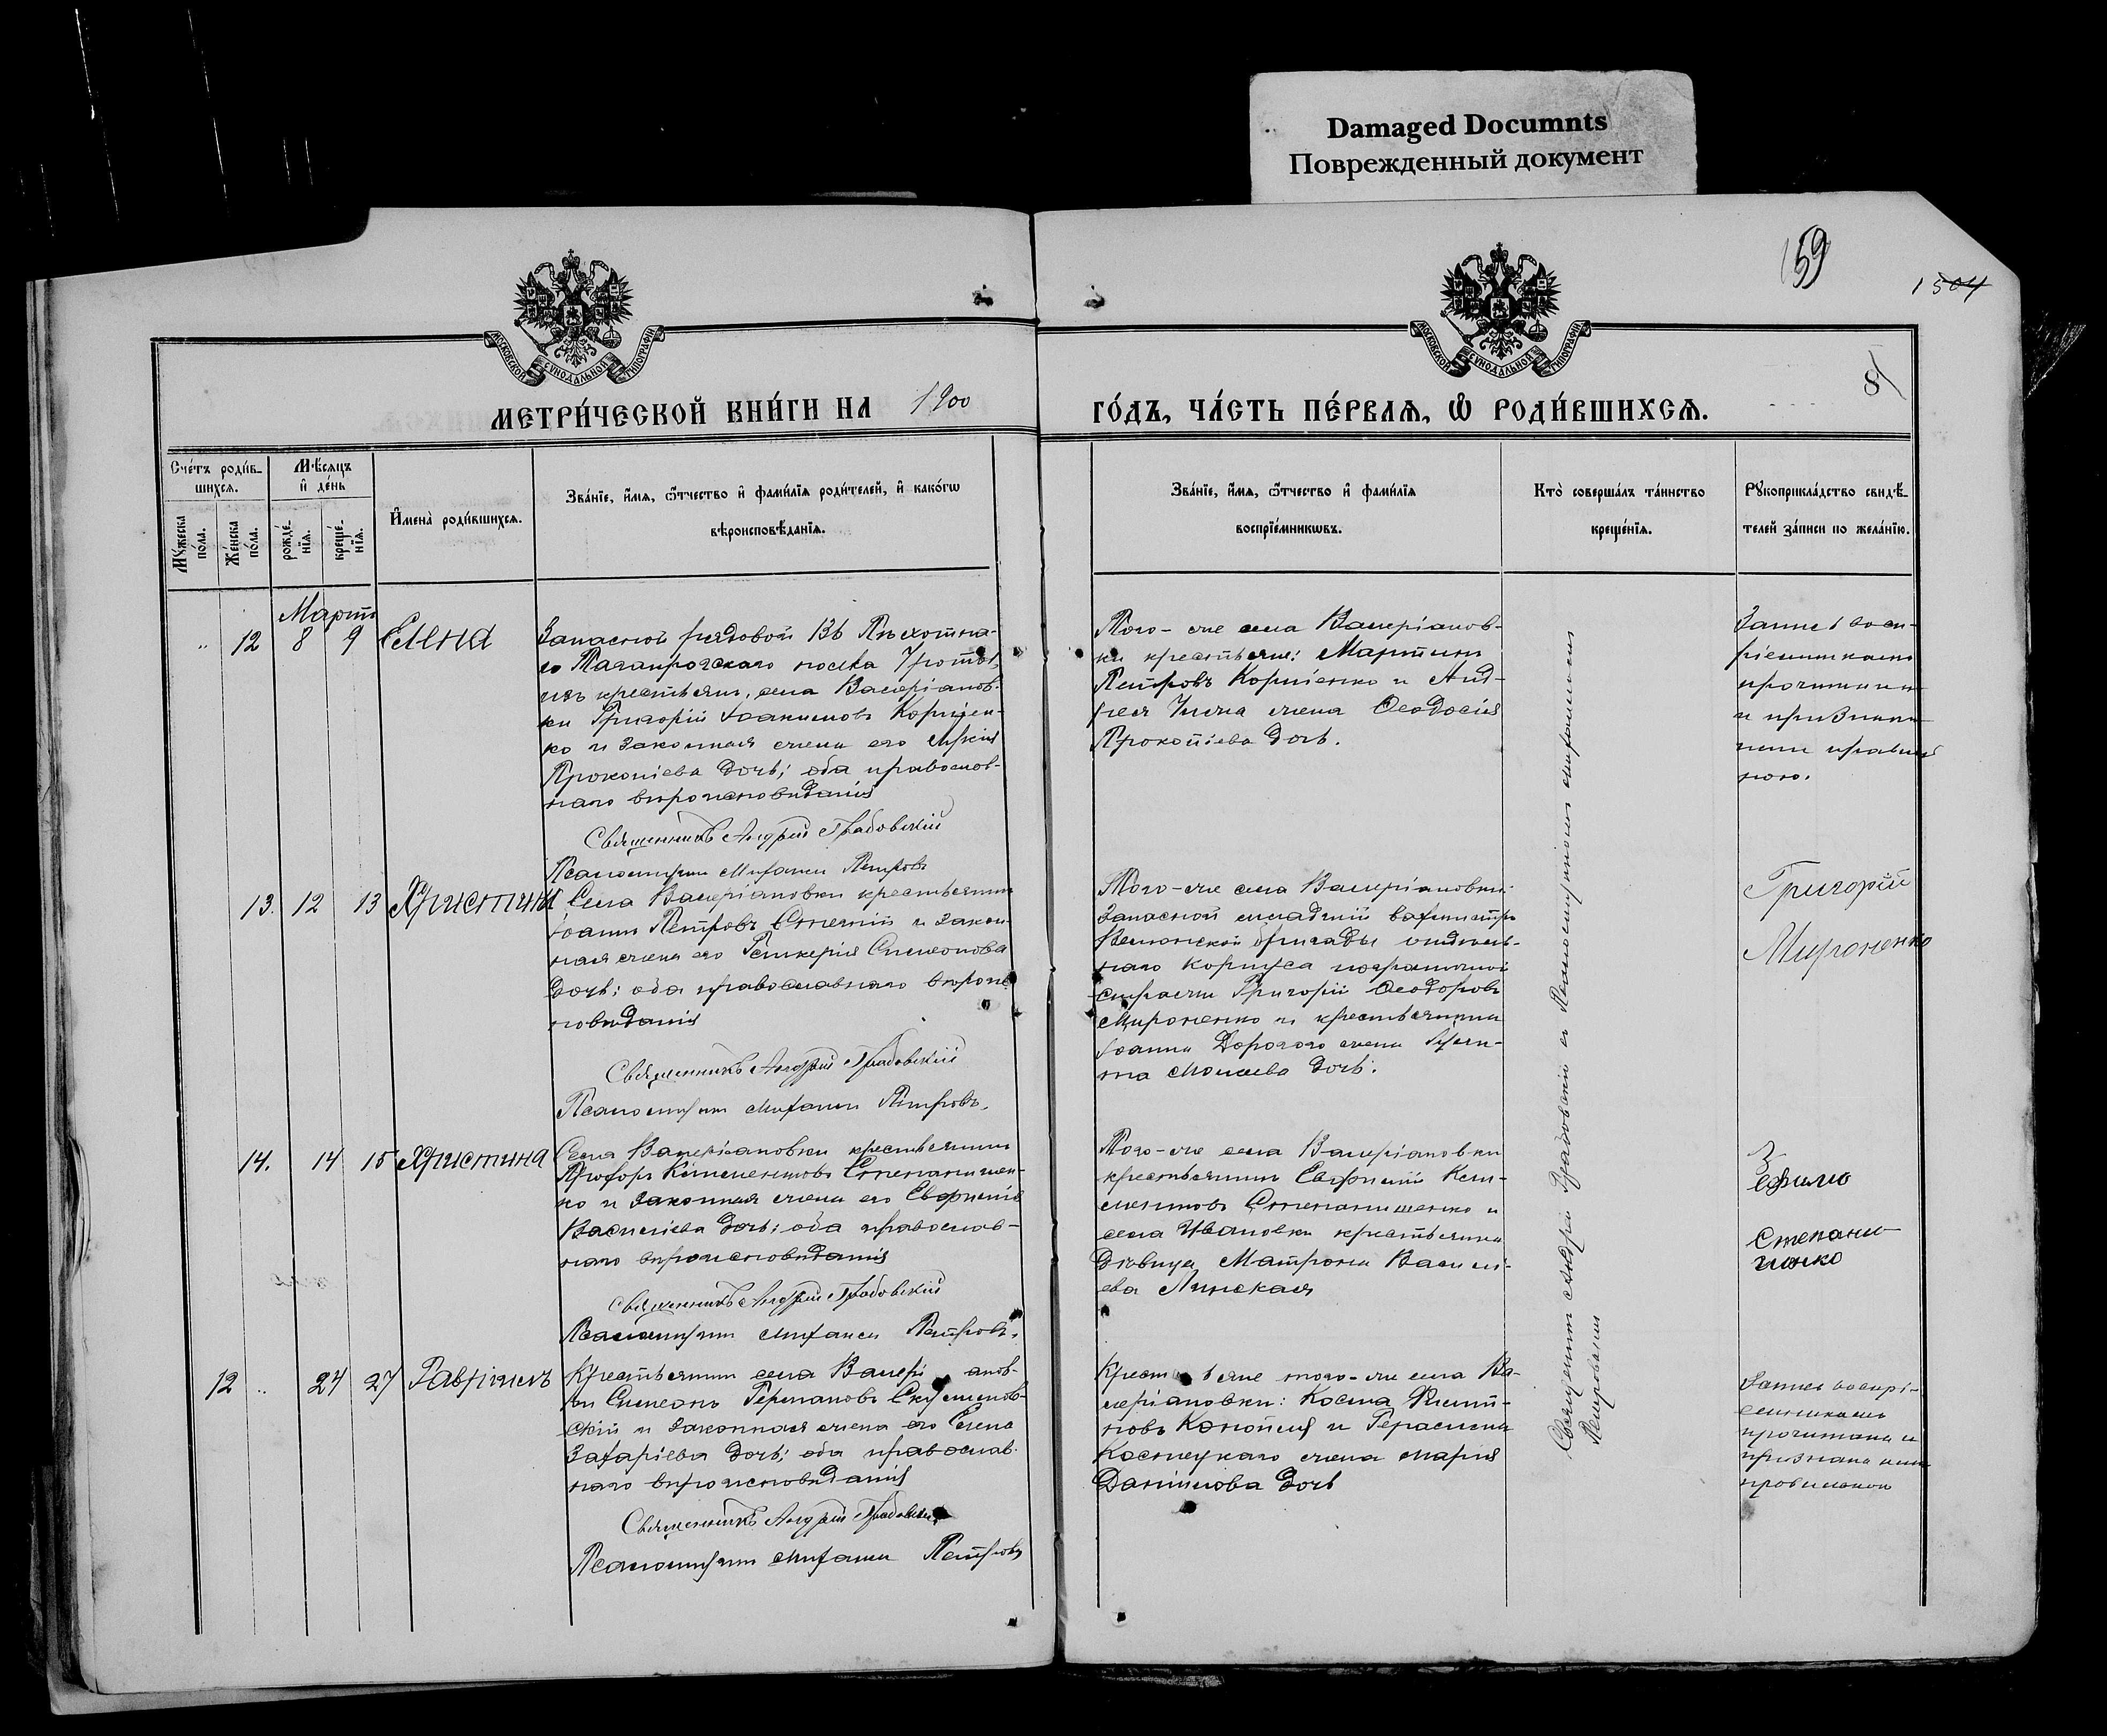 Damaged Documnts
Поврежденный документ
159
1504
8
МОСКОВСКОЙ СѴНОДАЛЬНОЙ ТИПОГРАФІИ
МОСКОВСКОЙ СѴНОДАЛЬНОЙ ТИПОГРАФІИ
МЕТРИ́ЧЕСКОЙ КНИ́ГИ НА 1900
ГО́ДЪ, ЧА́СТЬ ПЕ́РВАѦ, Ѽ РОДИ́ВШИХСѦ.
Сче́тъ роди́в-
шихсѧ.
Мѣ́сѧцъ
и҆ де́нь
Мꙋ́жеска
по́ла.
Же́нска
по́ла.
рожде́-
нїѧ.
креще́-
нїѧ.
И҆мена̀ роди́вшихсѧ.
Зва́нїе, и҆́мѧ, ѻ҆́тчество и҆ фами́лїѧ роди́телей, и҆ како́гѡ
вѣроисповѣ́данїѧ.
Зва́нїе, и҆́мѧ, ѻ҆́тчество и҆ фами́лїѧ
воспрїе́мникѡвъ.
Кто̀ соверша́лъ та́инство
креще́нїѧ.
Рꙋкоприкла́дство свидѣ́-
телей за́писи по жела́нїю.
Мартъ
12 8 9 Елена
Запасной рядовой 136 Пѣхотна-
го Таганрогскаго полка
изъ крестьянъ, села Валеріанов-
ки Григорій Іоакимовъ Корніен-
ко и законная жена его
Прокопіева дочь; оба православ-
наго вѣроисповѣданія
Священникъ Андрей Грабовскій
Псаломщикъ Митрофанъ Петровъ
Того-же села Валеріанов-
ки крестьяне: Мартинъ
Петровъ Корніенко и Анд-
рея жена Ѳеодосія
Прокопіева дочь.
Запись воспр-
ріемникамъ
прочитана
и признана
ими правиль
ною.
13. 12 13 Христина
Села Валеріановки крестьянинъ
Іоаннъ Петровъ и закон-
ная жена его Гликерія Симеонова
дочь; оба православнаго вѣроис-
повѣданія
Священникъ Андрей Грабовскій
Псаломщикъ Митрофанъ Петровъ.
Того-же села Валеріановки:
Запасной младшій вахмистръ
бригады отдѣль-
наго корпуса пограничной
стражи Григорій Ѳеодоровъ
Мироненко и крестьянина
Іоанна Дорогого жена
на Моисеева дочь.
Григорій
Мироненко
14. 14 15 Христина
Села Валеріановки крестьянинъ
Прохоръ Климентовъ Степанишен-
ко и законная жена его Евфимія
Василіева дочь; оба православ-
наго вѣроисповѣданія
Священникъ Андрей Грабовскій
Псаломщикъ Митрофанъ Петровъ.
Того-же села Валеріановки
крестьянинъ Евфимій Кли-
ментовъ Степанишенко и
села Ивановки крестьянка
дѣвица Матрона Василі-
ева Линская
Ефимъ
Степани-
шенко
12 24 27 Гавріилъ
Крестьянинъ села Валеріанов-
ки Симеонъ Германовъ
скій и законная жена его Елена
Захаріева дочь; оба православ-
наго вѣроисповѣданія
Священникъ Андрей Грабовскій
Псаломщикъ Митрофанъ Петровъ
Крестьяне того-же села Ва-
леріановки: Косма Филип-
повъ и Герасима
Костецкаго жена Марія
Даніилова дочь
Запись воспрі-
емникамъ
прочитана и
признана ими
правильною
Священникъ Андрей Грабовскій съ Псаломщикомъ Митрофаномъ
Петровымъ